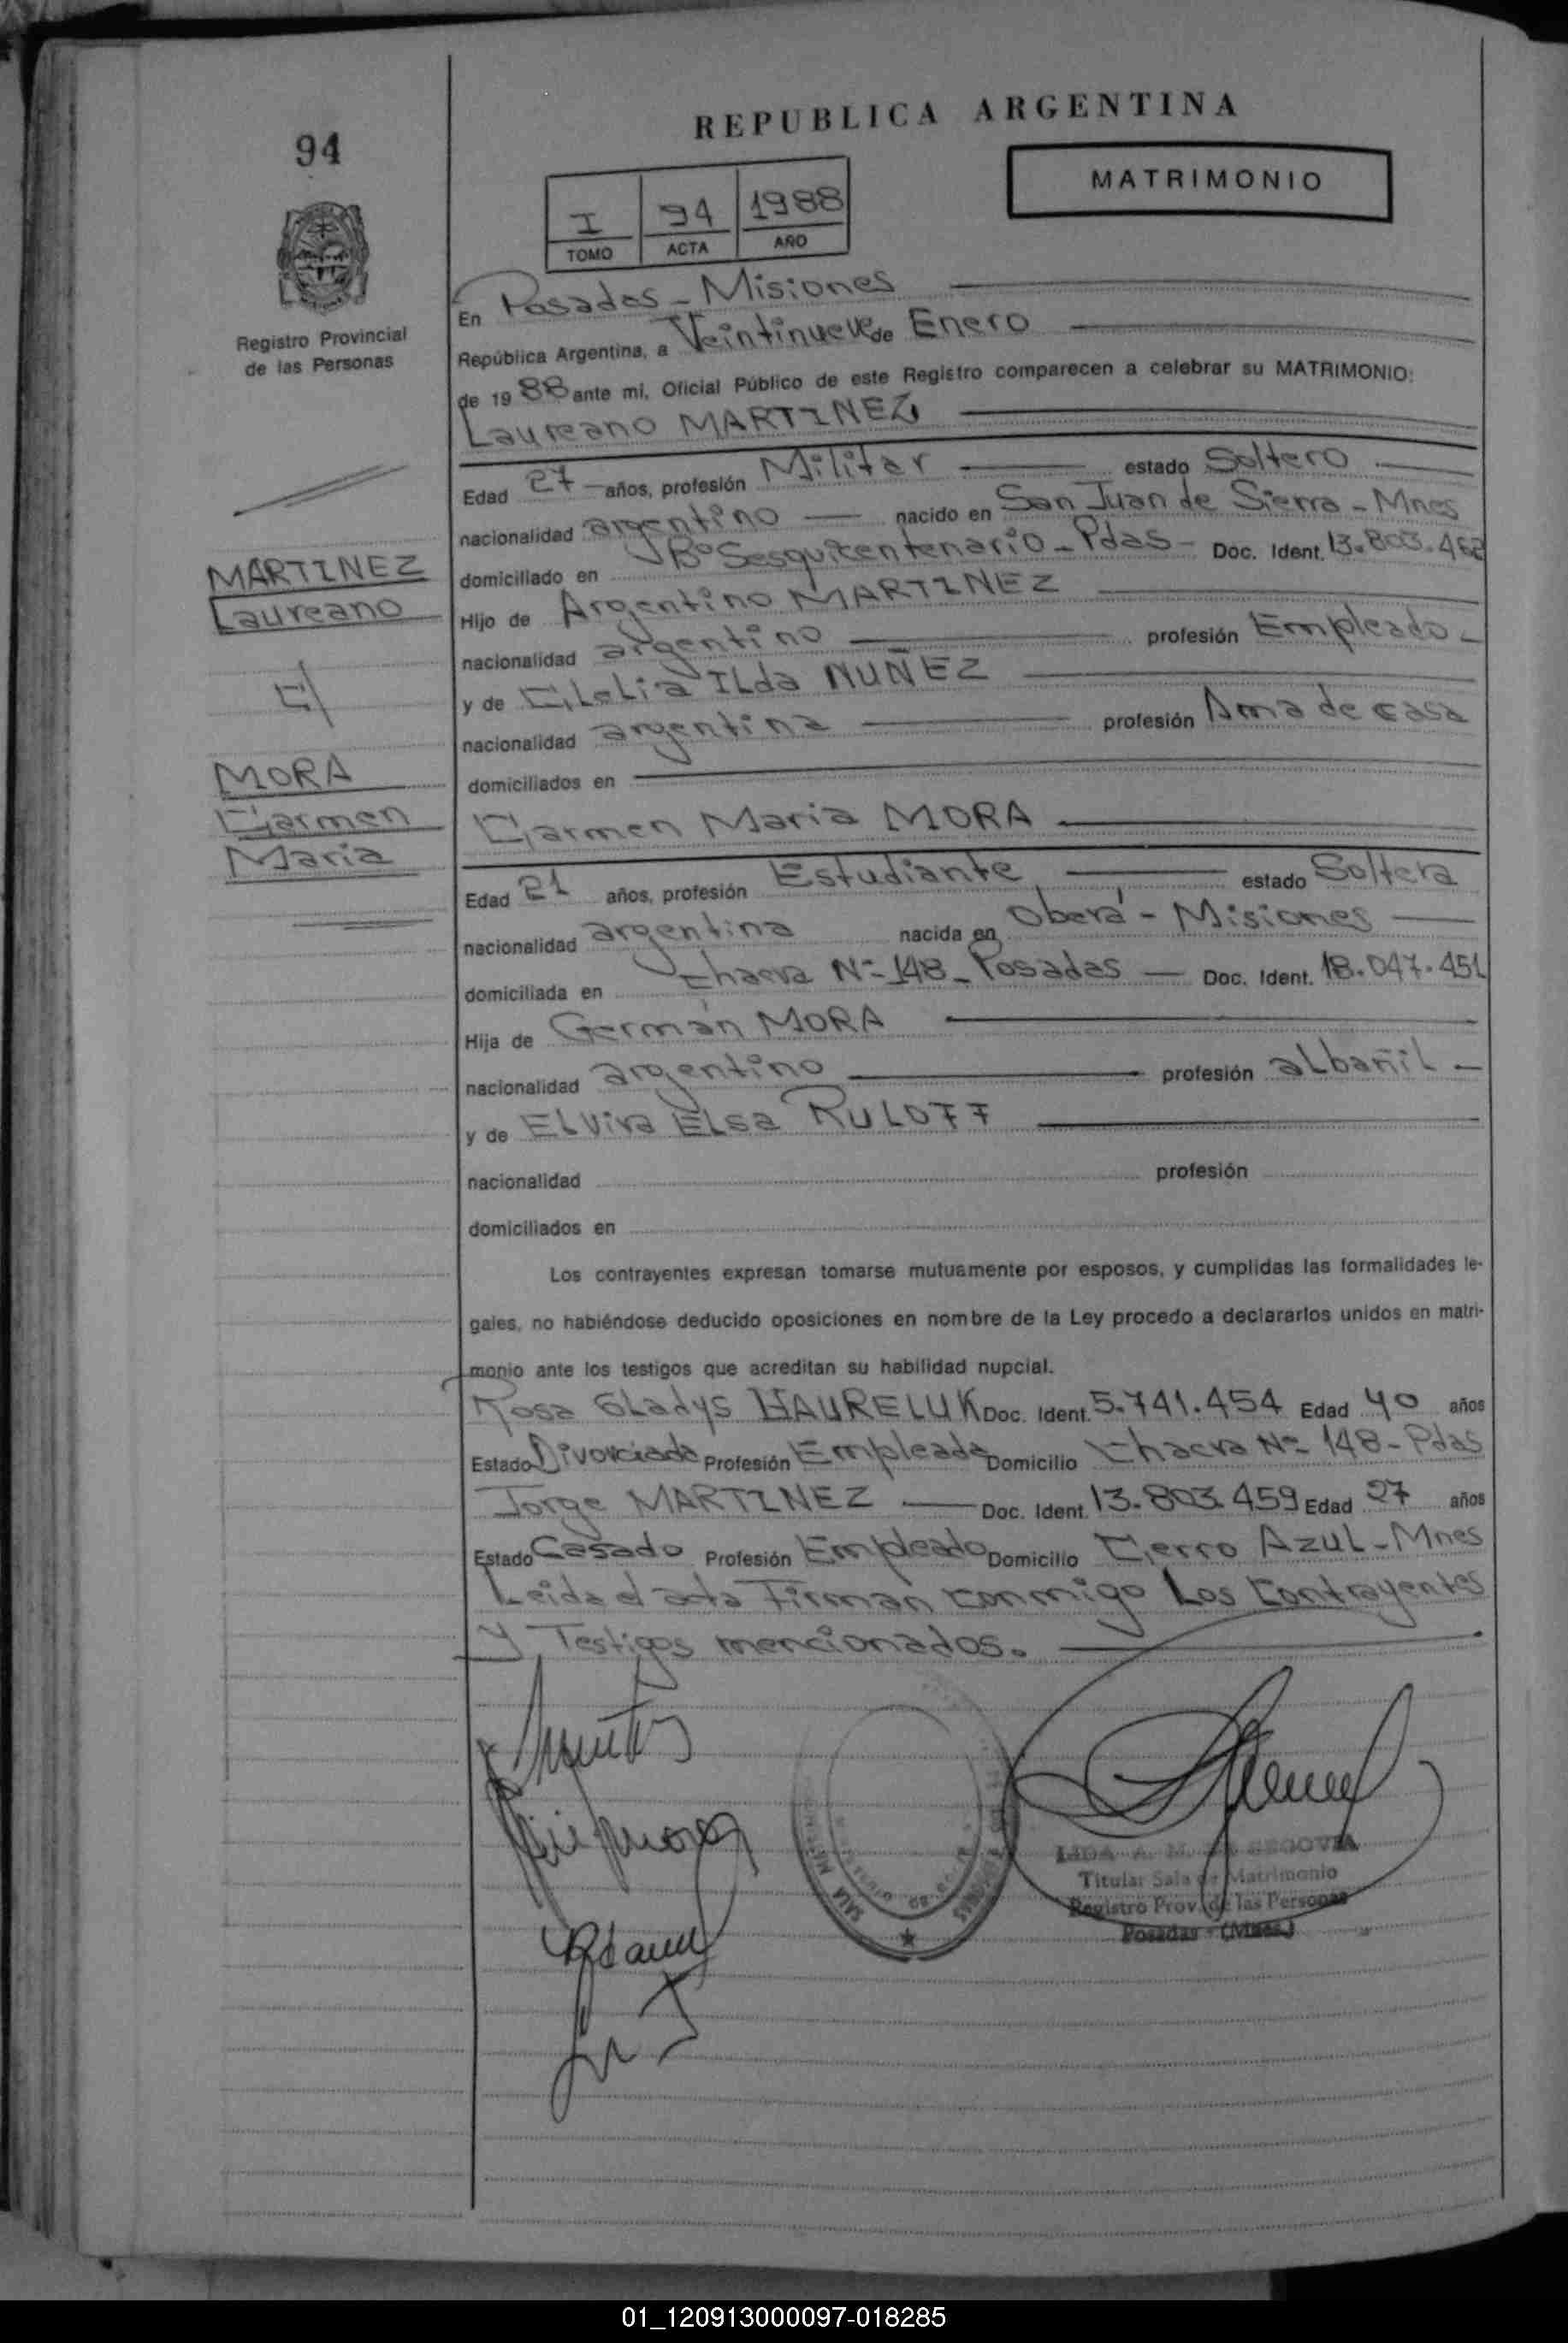 REPUBLICA ARGENTINA
94
MATRIMONIO
I 94 1988
TOMO ACTA AÑO
Registro Provincial
de las Personas
En Posadas - Misiones
República Argentina, a Veintinueve de Enero
de 19 88 ante mi, Oficial Público de este Registro comparecen a celebrar su MATRIMONIO:
Laureano MARTINEZ
Edad 27 años, profesión Militar estado Soltero
nacionalidad argentino nacido en San Juan de Sierra - Mnes
domiciliado en Bº Sesquicentenario - Pdas - Doc. Ident. 13.803.462
MARTINEZ
Laureano
Hijo de Argentino MARTINEZ
nacionalidad argentino profesión Empleado -
c/
y de Clelia ILda NUÑEZ
nacionalidad argentina profesión Ama de casa
domiciliados en
MORA
Carmen
Maria
Carmen Maria MORA
Edad 21 años, profesión Estudiante estado Soltera
nacionalidad argentina nacida en Oberá - Misiones
domiciliada en Chacra Nº 148 - Posadas - Doc. Ident. 18.047.451
Hija de Germán MORA
nacionalidad argentino profesión albañil -
y de Elvira Elsa RULOFF
nacionalidad profesión
domiciliados en
Los contrayentes expresan tomarse mutuamente por esposos, y cumplidas las formalidades le-
gales, no habiéndose deducido oposiciones en nombre de la Ley procedo a declararlos unidos en matri-
monio ante los testigos que acreditan su habilidad nupcial.
Rosa Gladys HAURELUK Doc. Ident. 5.741.454 Edad 40 años
Estado Divorciada Profesión Empleada Domicilio Chacra Nº 148 - Pdas
Jorge MARTINEZ Doc. Ident. 13.803.459 Edad 27 años
Estado Casado Profesión Empleado Domicilio Cerro Azul - Mnes
Leida el acta Firman conmigo Los Contrayentes
y Testigos mencionados.
SEGOVIA
Titular Sala de Matrimonio
Registro Prov. de las Personas
Posadas - (Mnes.)
01_120913000097-018285